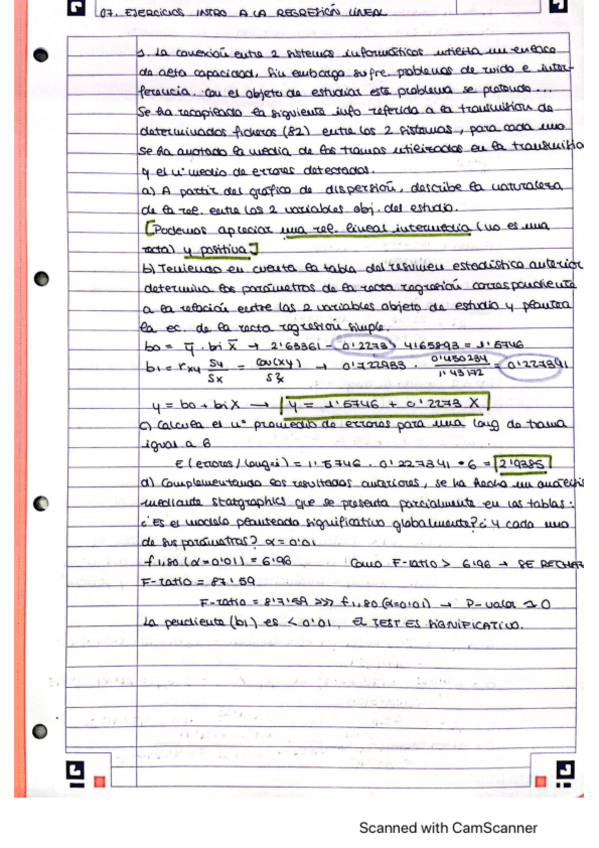 07. EJERCICIOS INTRO A LA REGRESIÓN LINEAL
1. La conexión entre 2 sistemas informáticos utiliza un enlace
de alta capacidad, sin embargo sufre problemas de ruido e inter-
ferencia. Con el objeto de estudiar este problema se pretende...
Se ha recopilado la siguiente info referida a la transmisión de
determinados ficheros (82) entre los 2 sistemas, para cada uno
se ha anotado la media de las tramas utilizadas en la transmisió
y el nº medio de errores detectados.
a) A partir del gráfico de dispersión, describe la naturaleza
de la rel. entre las 2 variables obj. del estudio.
[Podemos apreciar una rel. lineal intermedia (no es una
recta) y positiva]
b) Teniendo en cuenta la tabla del resumen estadístico anterior
determina los parámetros de la recta regresión correspondiente
a la relación entre las 2 variables objeto de estudio y plantea
la ec. de la recta regresión simple.
b0 = y̅ - b1 x̅ → 2'63361 - 0'2273 · 4'65893 = 1'5746
b1 = rxy Sy/Sx = cov(xy)/S²x → 0'722983 · 0'450234/1'43172 = 0'227391
y = b0 + b1 X → y = 1'5746 + 0'2273 X
c) Calcula el nº promedio de errores para una long de trama
igual a 6
E(errores/long=i) = 1'5746 · 0'227341 · 6 = 2'9385
d) Complementando los resultados anteriores, se ha hecho un
mediante statgraphics que se presenta parcialmente en las tablas:
¿Es el modelo planteado significativo globalmente? ¿Y cada uno
de sus parámetros? α = 0'01
f1,80 (α=0'01) = 6'96 Como F-ratio > 6'96 → SE RECHAZ
F-ratio = 87'59
F-ratio = 87'59 >>> f1,80 (α=0'01) → P-valor ≃ 0
La pendiente (b1) es < 0'01, EL TEST ES SIGNIFICATIVO.
Scanned with CamScanner